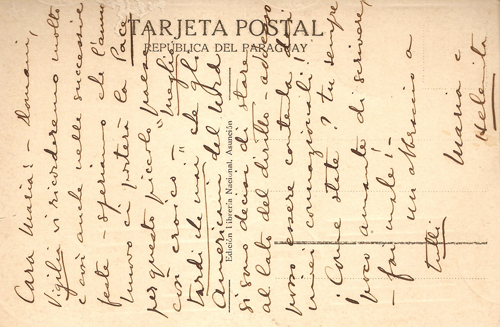 TARJETA POSTAL
REPÚBLICA DEL PARAGUAY
Edición Librería Nacional, Asunción
Cara Maria: - Domani,
Vigilia, vi ricorderemo molto
e così anche nelle successive
feste - speriamo che l'anno
nuovo ci porterà la Pace
per questo piccolo "paese
così eroico" - meglio
tardi che mai che gl'
Americani del Nord
si sono decisi di stare
al lato del diritto - adesso
posso essere contenta dei
miei connazionali!
¡Come state? tu sempre
poco amante di scrivere,
- fai male! -
un abbraccio a
tutti
Maria e
Helenita